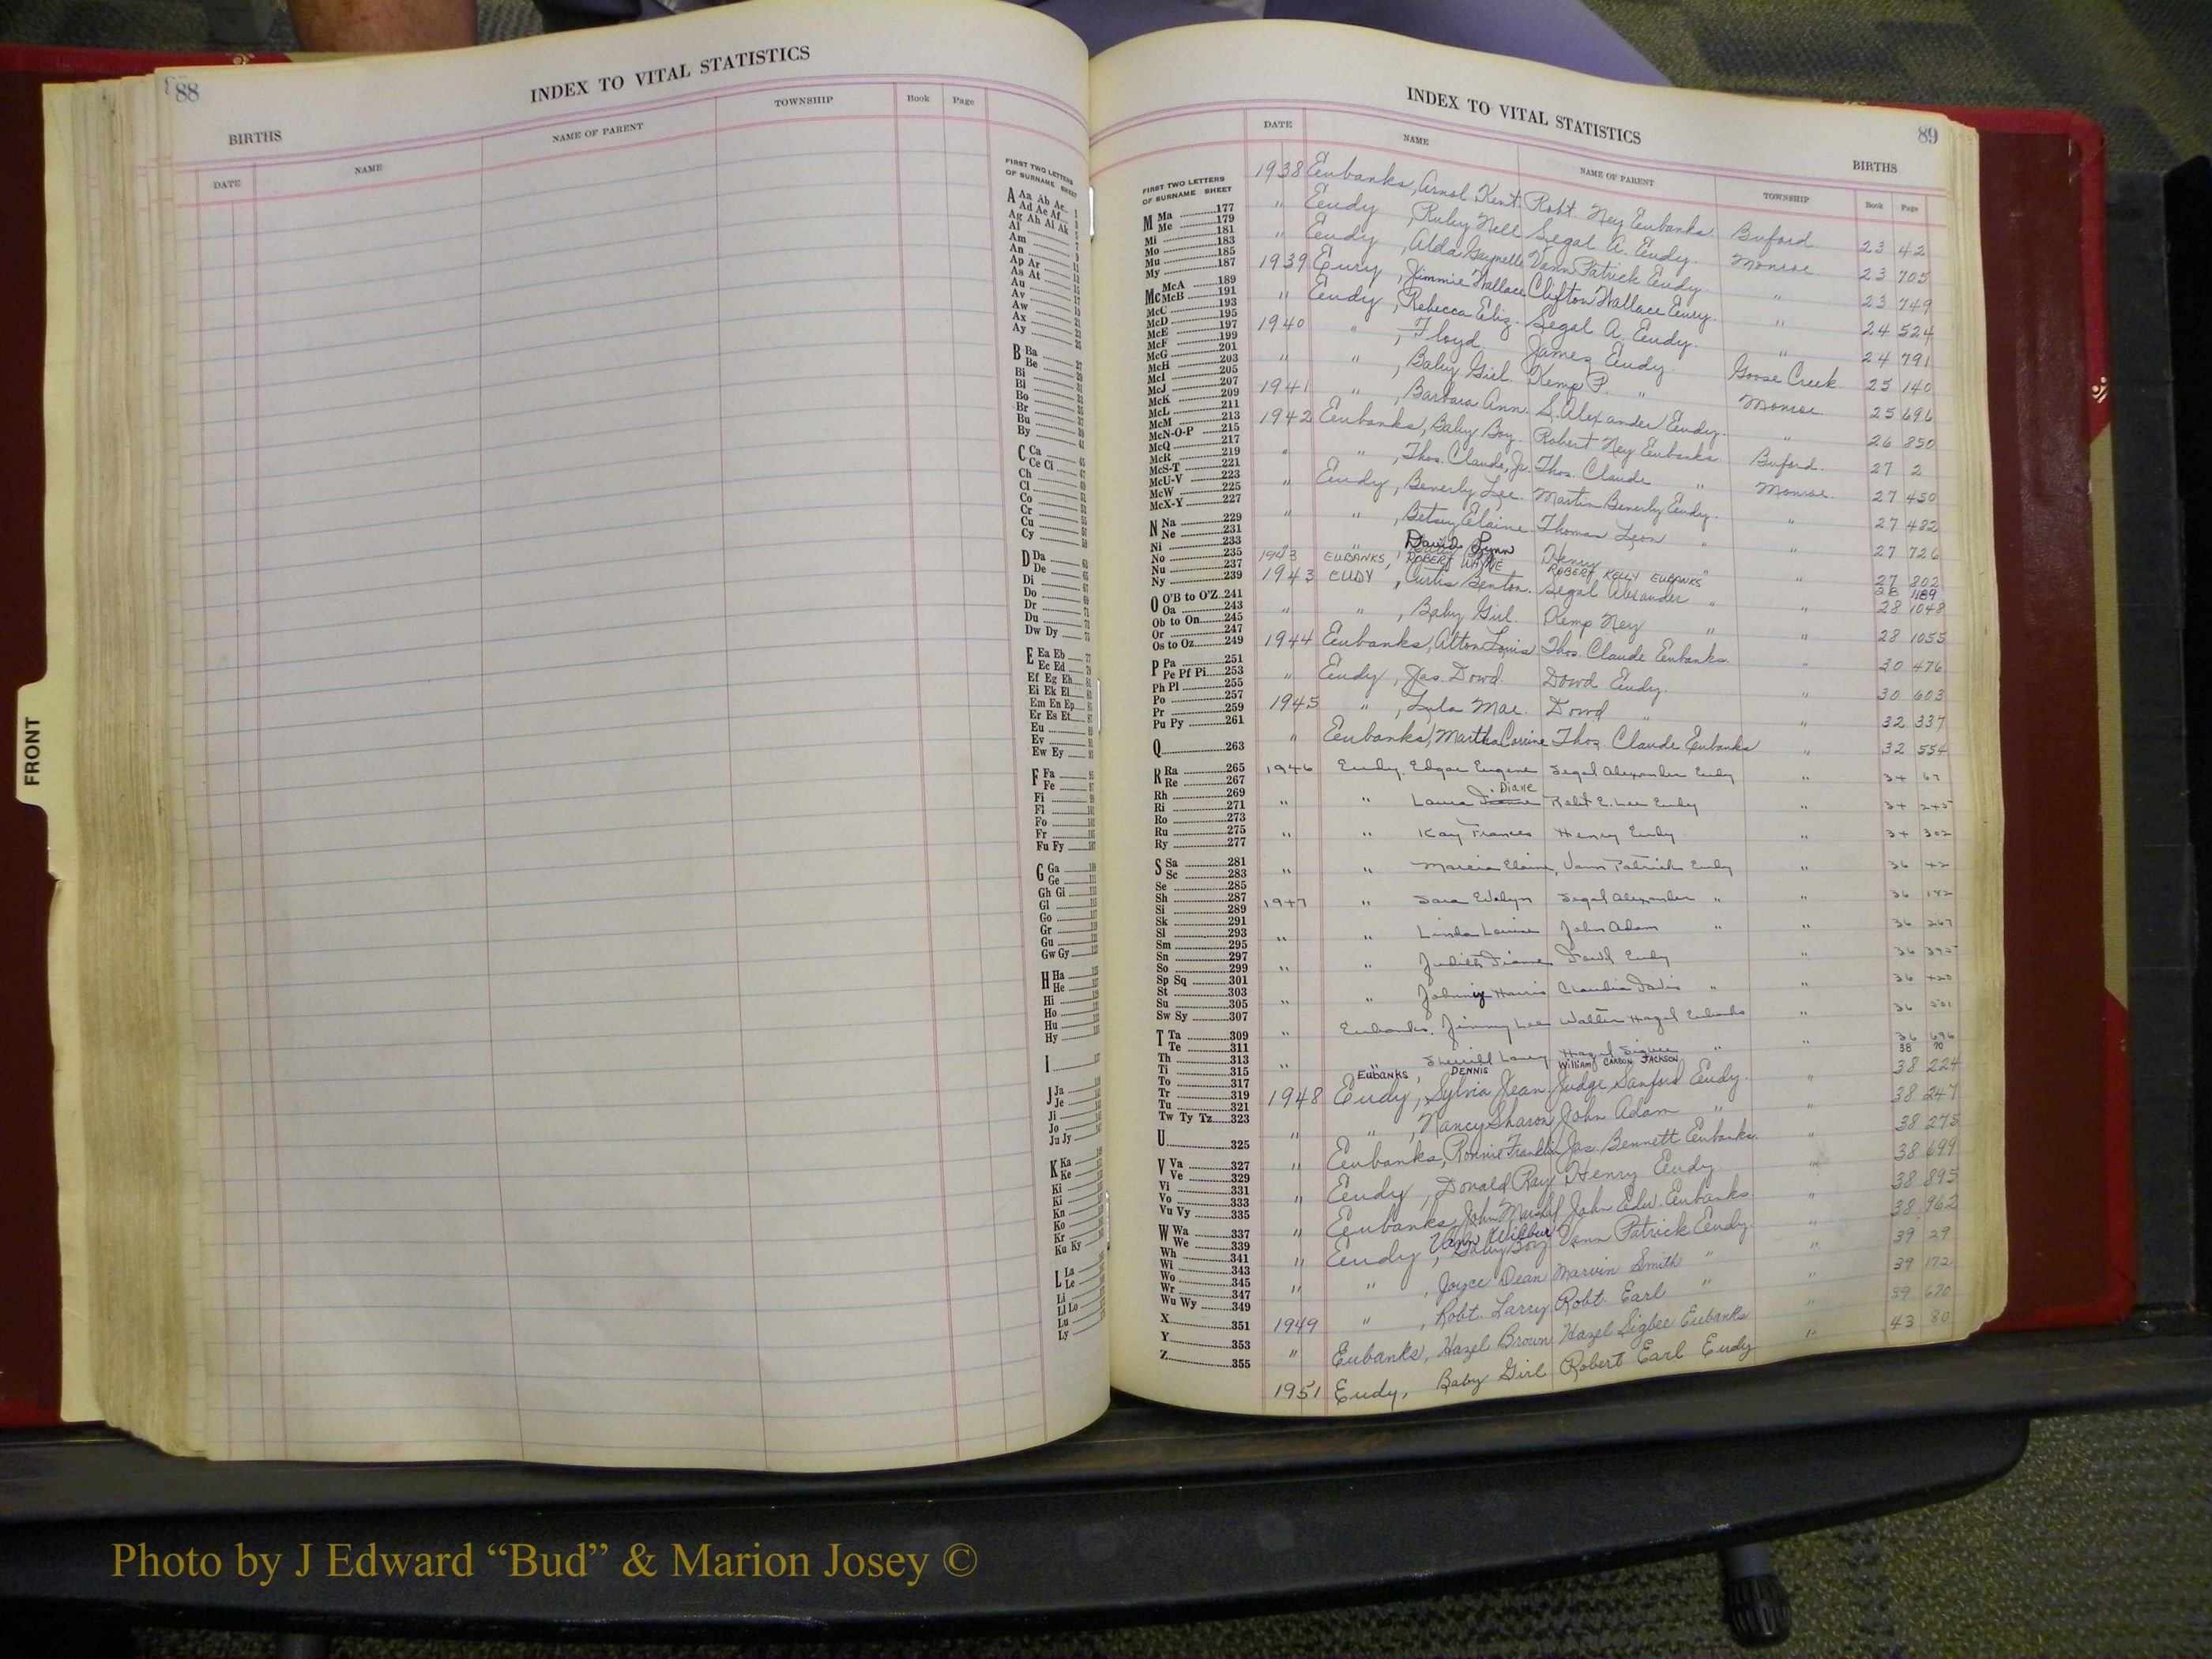 88
INDEX TO VITAL STATISTICS
BIRTHS
DATE NAME NAME OF PARENT TOWNSHIP Book Page
FIRST TWO LETTERS
OF SURNAME SHEET
A Aa Ab Ac
Ad Ae Af
Ag Ah Ai Ak
Al
Am
An
Ap Ar
As At
Au
Av
Aw
Ax
Ay
B Ba
Be
Bi
Bl
Bo
Br
Bu
By
C Ca
Ce Ci
Ch
Cl
Co
Cr
Cu
Cy
D Da
De
Di
Do
Dr
Du
Dw Dy
E Ea Eb
Ec Ed
Ef Eg Eh
Ei Ek El
Em En Ep
Er Es Et
Eu
Ev
Ew Ey
F Fa
Fe
Fi
Fl
Fo
Fr
Fu Fy
G Ga
Ge
Gh Gi
Gl
Go
Gr
Gu
Gw Gy
H Ha
He
Hi
Ho
Hu
Hy
I
J Ja
Je
Ji
Jo
Ju Jy
K Ka
Ke
Ki
Kl
Kn
Ko
Kr
Ku Ky
L La
Le
Li
Ll Lo
Lu
Ly
FRONT
INDEX TO VITAL STATISTICS
89
BIRTHS
DATE NAME NAME OF PARENT TOWNSHIP Book Page
FIRST TWO LETTERS
OF SURNAME SHEET
M Ma 177
Me 179
Mi 181
Mo 183
Mu 185
My 187
Mc McA 189
McB 191
McC 193
McD 195
McE 197
McF 199
McG 201
McH 203
McI 205
McJ 207
McK 209
McL 211
McM 213
McN-O-P 215
McQ 217
McR 219
McS-T 221
McU-V 223
McW 225
McX-Y 227
N Na 229
Ne 231
Ni 233
No 235
Nu 237
Ny 239
O O'B to O'Z 241
Oa 243
Ob to On 245
Or 247
Os to Oz 249
P Pa 251
Pe Pf Pi 253
Ph Pl 255
Po 257
Pr 259
Pu Py 261
Q 263
R Ra 265
Re 267
Rh 269
Ri 271
Ro 273
Ru 275
Ry 277
S Sa 281
Sc 283
Se 285
Sh 287
Si 289
Sk 291
Sl 293
Sm 295
Sn 297
So 299
Sp Sq 301
St 303
Su 305
Sw Sy 307
T Ta 309
Te 311
Th 313
Ti 315
To 317
Tr 319
Tu 321
Tw Ty Tz 323
U 325
V Va 327
Ve 329
Vi 331
Vo 333
Vu Vy 335
W Wa 337
We 339
Wh 341
Wi 343
Wo 345
Wr 347
Wu Wy 349
X 351
Y 353
Z 355
1938 Eubanks, Arnol Kent Robt. Ney Eubanks Buford 23 42
" Eudy, Ruby Nell Segal A. Eudy Monroe 23 705
" Eudy, Alda Gaynelle Vann Patrick Eudy " 23 749
1939 Eury, Jimmie Wallace Clifton Wallace Eury " 24 524
" Eudy, Rebecca Eliz. Segal A. Eudy " 24 791
1940 ", Floyd James Eudy Goose Creek 25 140
" ", Baby Girl Kemp P. " Monroe 25 696
1941 ", Barbara Ann S. Alexander Eudy " 26 850
1942 Eubanks, Baby Boy Robert Ney Eubanks Buford 27 2
" ", Thos. Claude, Jr. Thos. Claude " Monroe 27 450
" Eudy, Beverly Lee Martin Beverly Eudy " 27 482
" ", Betsy Elaine Thomas Leon " " 27 726
" ", David Lynn Henry " " 27 802
1943 EUBANKS, ROBERT WAYNE ROBERT KELLY EUBANKS 28 1189
1943 EUDY, Curtis Benton Segal Alexander " " 28 1048
" ", Baby Girl Kemp Ney " " 28 1055
1944 Eubanks, Alton Louis Thos. Claude Eubanks " 30 476
" Eudy, Jas. Dowd Dowd Eudy " 30 603
1945 ", Lula Mae Dowd " " 32 337
" Eubanks, Martha Corrine Thos. Claude Eubanks " 32 554
1946 Eudy, Edgar Eugene Segal Alexander Eudy " 34 67
" " Laura Diane Robt E. Lee Eudy " 34 245
" " Kay Frances Henry Eudy " 34 302
" " Marcia Elaine, Vann Patrick Eudy " 36 42
1947 " Sara Evelyn Segal Alexander " " 36 182
" " Linda Louise John Adam " " 36 267
" " Judith Dianne Dowd Eudy " 36 395
" " Johnny Harris Claudia Davis " " 36 420
" Eubanks, Jimmy Lee Walter Hazel Eubanks " 36 501
" " Sherrill Laney Hazel Sigbee " " 36 696
EUBANKS, DENNIS William CARSON JACKSON 38 70
1948 Eudy, Sylvia Jean Judge Sanford Eudy " 38 224
" ", Nancy Sharon John Adam " " 38 247
" Eubanks, Ronnie Franklin Jas. Bennett Eubanks " 38 275
" Eudy, Donald Ray Henry Eudy " 38 699
" Eubanks, John Marshal John Edw. Eubanks " 38 895
" Eudy, Baby Boy Vann Wilbur Vann Patrick Eudy " 38 962
" ", Joyce Dean Marvin Smith " " 39 29
1949 ", Robt. Larry Robt. Earl " " 39 172
" Eubanks, Hazel Brown Hazel Sigbee Eubanks " 39 670
1951 Eudy, Baby Girl Robert Earl Eudy " 43 80
Photo by J Edward “Bud” & Marion Josey ©